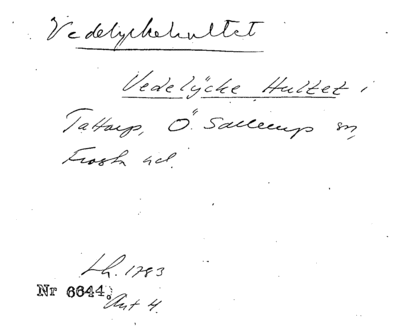 Vedelyckehultet
Vedelÿcke Hultet i
Tattarp, Ö. Sallerup sn,
Frosta hd.
Lh. 1783
Nr 6644. Akt 4.